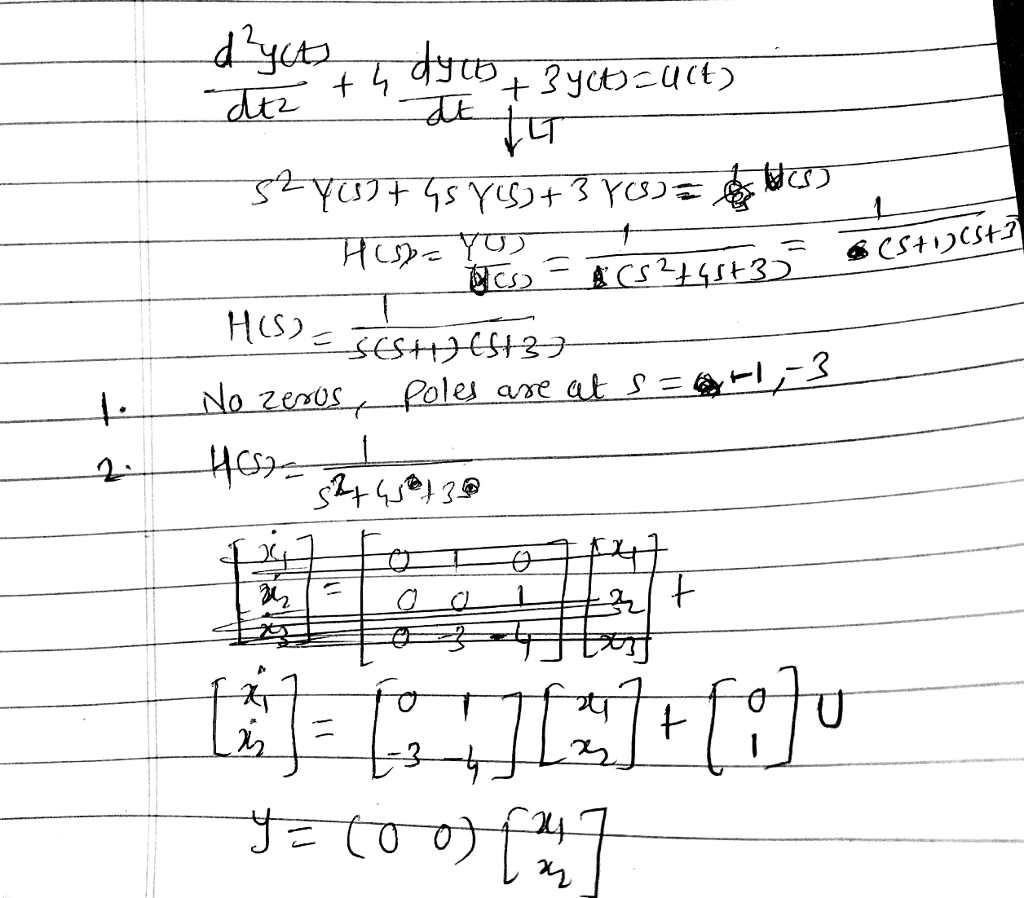 d²y(t)/dt² + 4 dy(t)/dt + 3y(t) = u(t)
↓ LT
s² Y(s) + 4s Y(s) + 3 Y(s) = U(s)
H(s) = Y(s)/U(s) = 1/(s²+4s+3) = 1/(s+1)(s+3
H(s) = 1/s(s+1)(s+3)
1. No zeros, Poles are at s = -1, -3
2. H(s) = 1/s²+4s+3
[ẋ1 ẋ2 ẋ3] = [0 1 0; 0 0 1; 0 -3 -4] [x1 x2 x3] +
[ẋ1 ẋ2] = [0 1; -3 -4] [x1 x2] + [0 1] U
y = (0 0) [x1 x2]